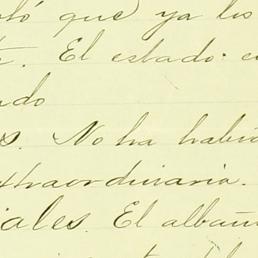 tó que ya los
. El estado
ndo
s. No ha habi
xtraordinaria.
iales. El albañi